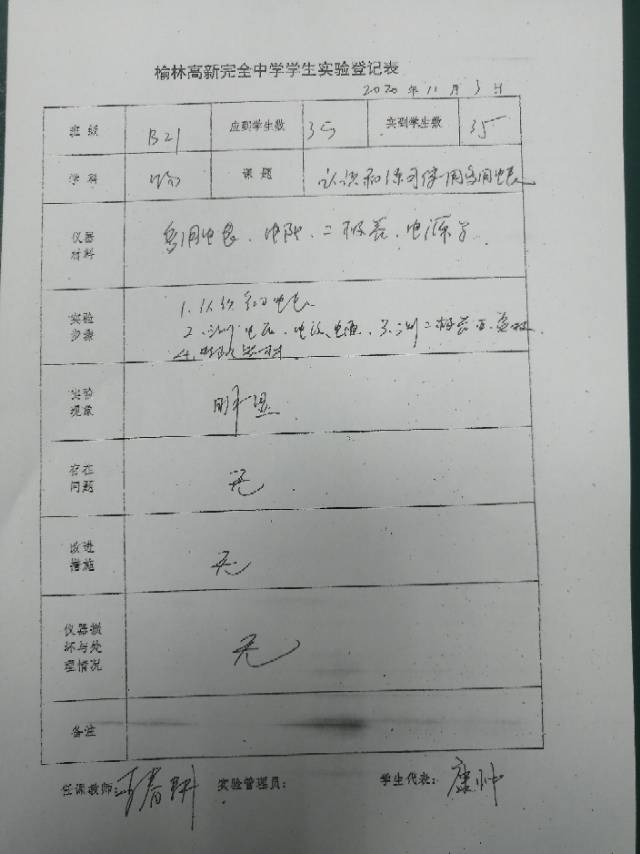 榆林高新完全中学学生实验登记表
2020 年 11 月 3 日
班 级 B21 应到学生数 35 实到学生数 35
学 科 物 课 题 认识和练习使用多用电表
仪器材料 多用电表、电阻、二极管、电源等
实验步骤 1. 认识多用电表
2. 测电压、电流、电阻, 3. 测二极管正
4.
实验现象 明显
存在问题 无
改进措施 无
仪器损坏与处理情况 无
备注
任课教师: 实验管理员: 学生代表: 康帅